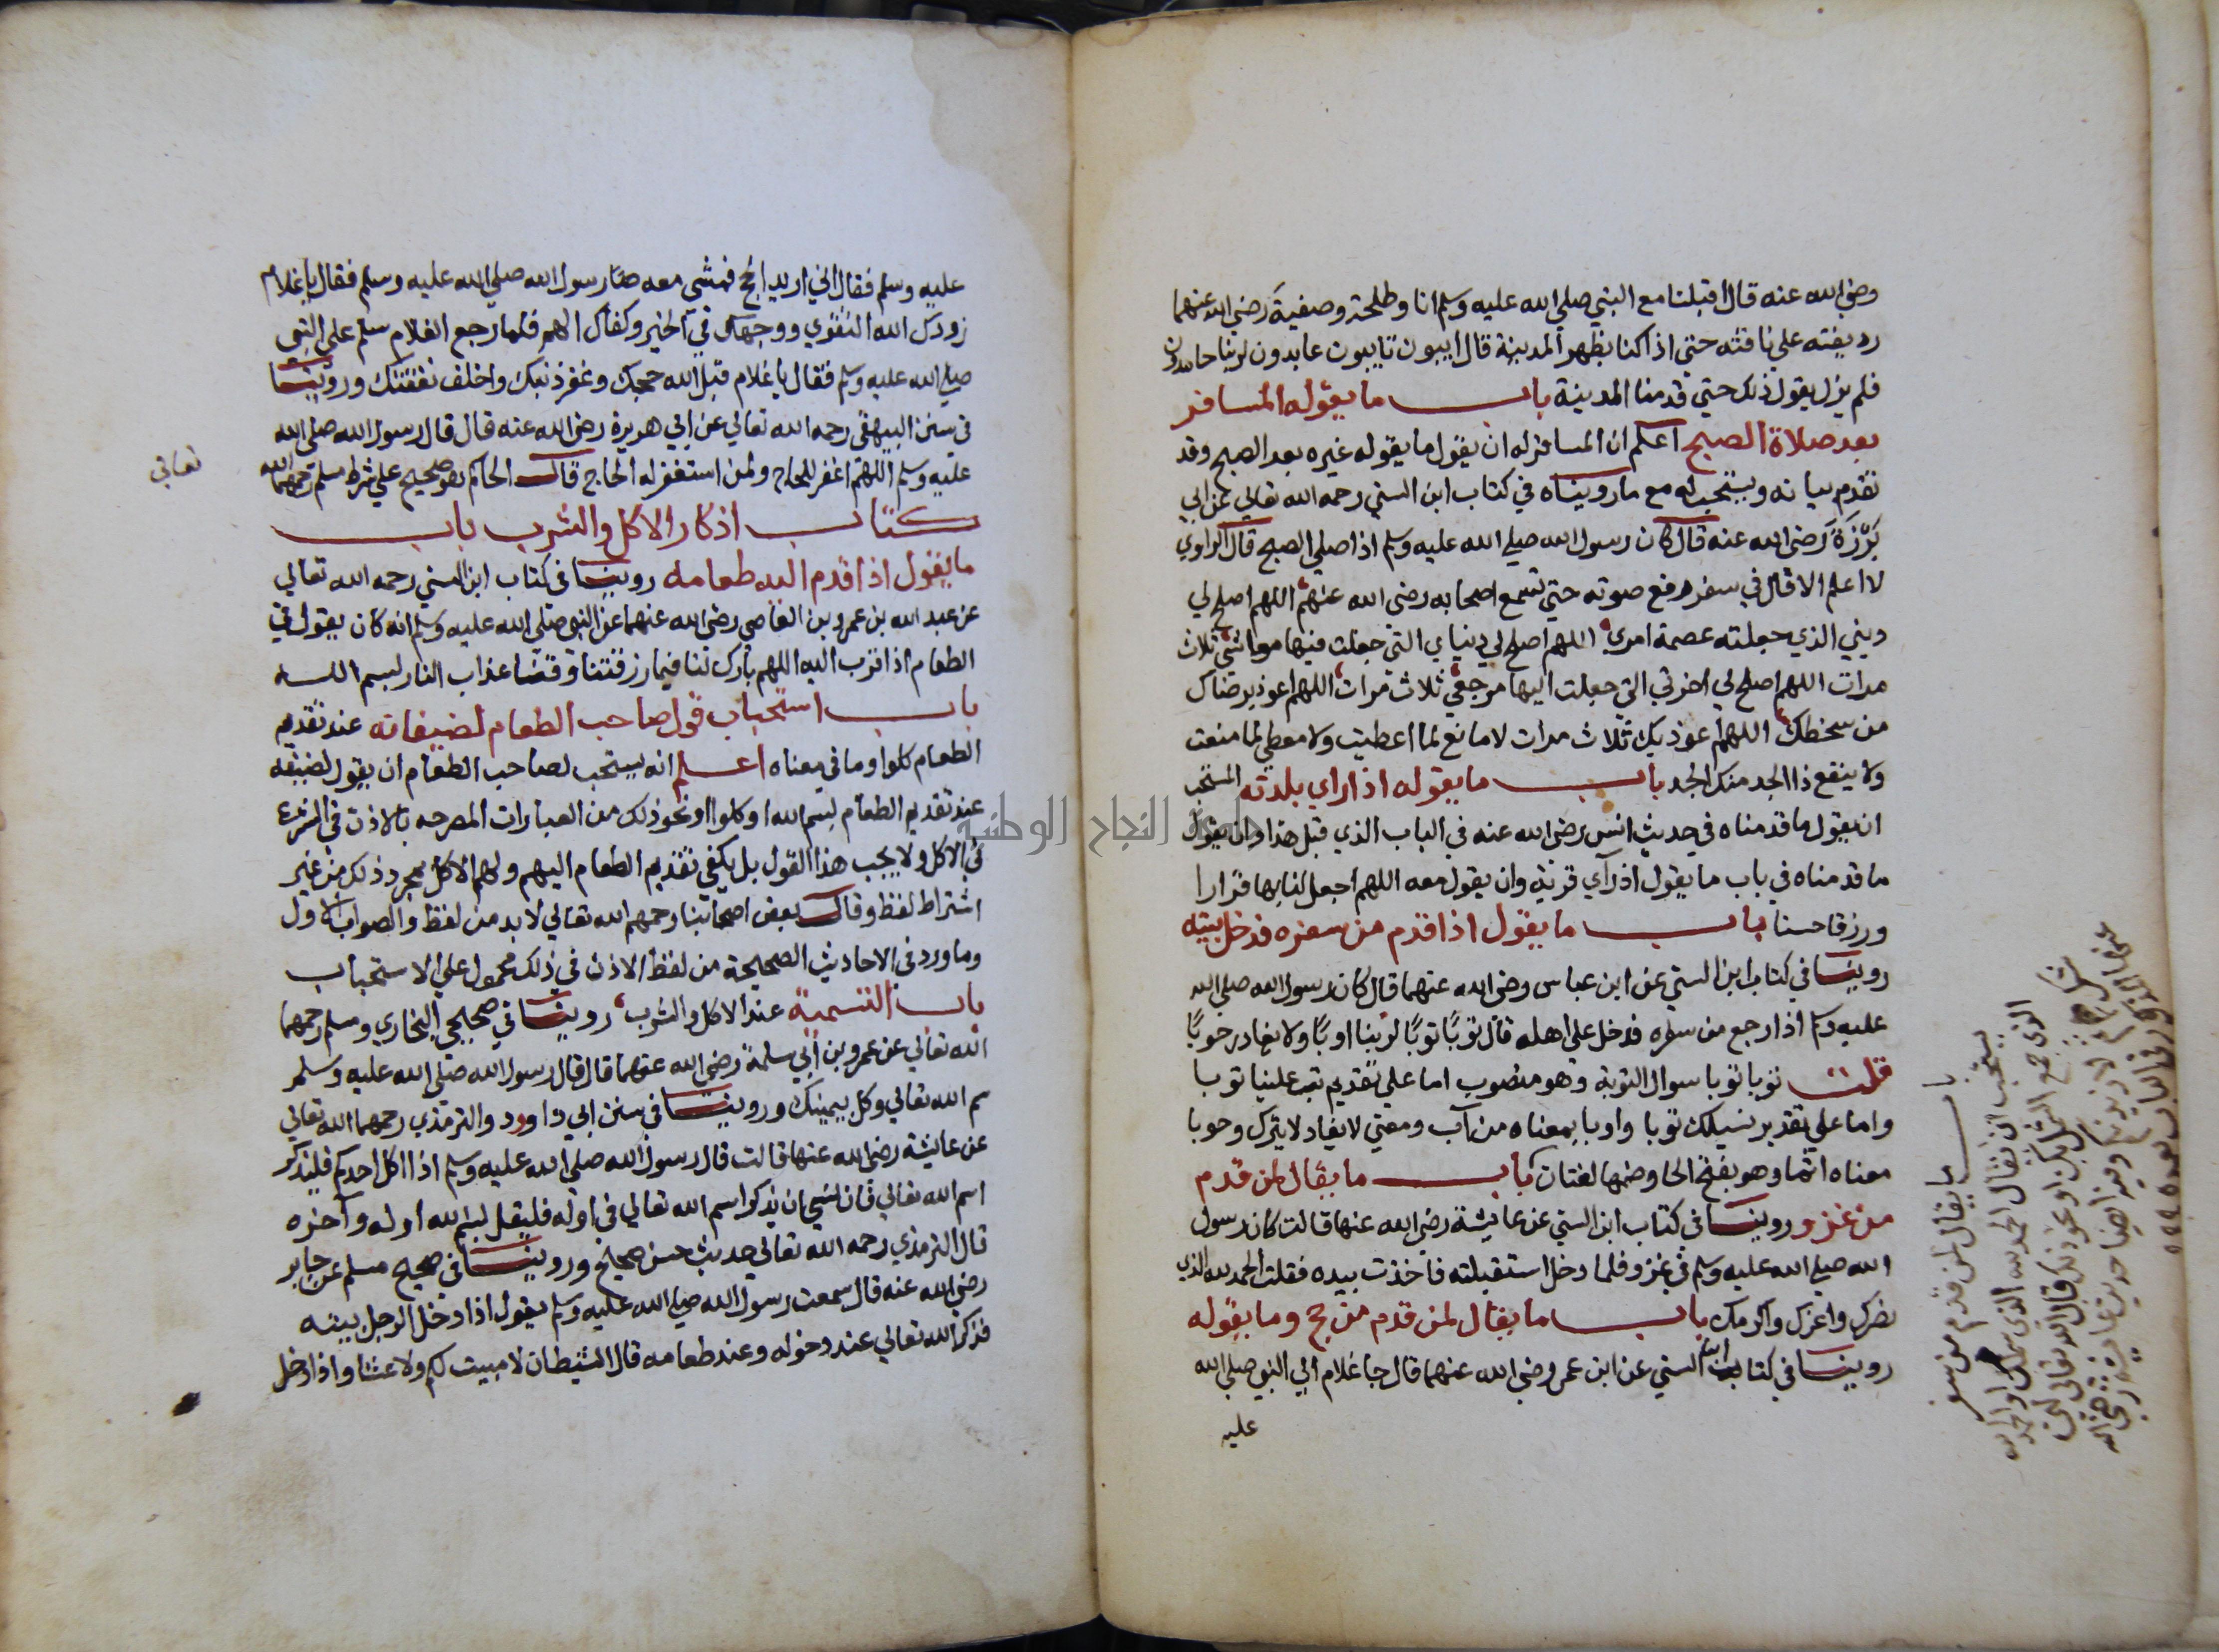 رضي الله عنه قال اقبلنا مع النبي صلي الله عليه وسلم انا وطلحة وصفية رضي الله عنهما
رديفته علي ناقته حتي اذا كنا بظهر المدينة قال ايبون تايبون عابدون لربنا حامدون
فلم يزل يقول ذلك حتي قدمنا المدينة باب ما يقوله المسافر
بعد صلاة الصبح اعلم ان المسافر له ان يقول ما يقوله غيره بعد الصبح وقد
تقدم بيانه ويستحب له مع ما رويناه في كتاب ابن السني رحمه الله تعالي عن ابي
برزة رضي الله عنه قال كان رسول الله صلي الله عليه وسلم اذا صلي الصبح قال الراوي
لا اعلم الا قال في سفر رفع صوته حتي تسمع اصحابه رضي الله عنهم اللهم اصلح لي
ديني الذي جعلته عصمة امري اللهم اصلح لي دنياي التي جعلت فيها معاشي ثلاث
مرات اللهم اصلح لي اخرتي التي جعلت اليها مرجعي ثلاث مرات اللهم اعوذ برضاك
من سخطك اللهم اعوذ بك ثلاث مرات لا مانع لما اعطيت ولا معطي لما منعت
ولا ينفع ذا الجد منك الجد باب ما يقوله اذا راي بلدته المستحب
ان يقول ما قدمناه في حديث انس رضي الله عنه في الباب الذي قبل هذا وان يقول
ما قدمناه في باب ما يقول اذا رآي قرية وان يقول معه اللهم اجعل لنا بها قرارا
ورزقا حسنا باب ما يقول اذا قدم من سفره فدخل بيته
روينا في كتاب ابن السني عن ابن عباس رضي الله عنهما قال كان رسول الله صلي الله
عليه وسلم اذا رجع من سفره فدخل علي اهله قال توبًا توبًا لربنا اوبًا ولا يغادر حوبًا
قلت توبا توبا سوال التوبة وهو منصوب اما علي تقديم تب علينا توبا
واما علي تقدير نسيلك توبا واوبا بمعناه من آب ومعني لا يغادر لا يترك وحوبا
معناه اثما وهو بفتح الحا وضمها لغتان باب ما يقال لمن قدم
من غزو روينا في كتاب ابن السني عن عايشة رضي الله عنها قالت كان رسول
الله صلي الله عليه وسلم في غزو فلما دخل استقبلته فاخذت بيده فقلت الحمد لله الذي
نصرك واعزك واكرمك باب ما يقال لمن قدم من حج وما يقوله
روينا في كتاب ابن السني عن ابن عمر رضي الله عنهما قال جا غلام الي النبي صلي الله
عليه
باب ما يقال لمن قدم من سفر
يستحب ان يقال الحمد لله الذي سلمك او الحمد لله
الذي جمع الشمل بك او نحو ذلك قال الله تعالي لين
شكرتم لازيدنكم وفيه ايضا حديث عايشة رضي الله
عنها المذكور في الباب بعده
جامعة النجاح الوطنية
عليه وسلم فقال اني اريد الحج فمشي معه رسول الله صلي الله عليه وسلم فقال يا غلام
زودك الله التقوي ووجهك في الخير وكفاك الهم فلما رجع الغلام سلم علي النبي
صلي الله عليه وسلم فقال يا غلام قبل الله حجك وغفر ذنبك واخلف نفقتك وروينا
في سنن البيهقي رحمه الله تعالي عن ابي هريرة رضي الله عنه قال قال رسول الله صلي الله
عليه وسلم اللهم اغفر للحاج ولمن استغفر له الحاج قال الحاكم هو صحيح علي شرط مسلم رحمهما الله
تعالي
كتاب اذكار الاكل والشرب باب
ما يقول اذا قدم اليه طعامه روينا في كتاب ابن السني رحمه الله تعالي
عن عبد الله بن عمرو بن العاصي رضي الله عنهما عن النبي صلي الله عليه وسلم انه كان يقول في
الطعام اذا قرب اليه اللهم بارك لنا فيما رزقتنا وقنا عذاب النار بسم الله
باب استحباب قول صاحب الطعام لضيفانه عند تقديم
الطعام كلوا وما في معناه اعلم انه يستحب لصاحب الطعام ان يقول لضيفه
عند تقديم الطعام بسم الله او كلوا او نحو ذلك من العبارات المصرحه بالاذن في الشرع
في الاكل ولا يجب هذا القول بل يكفي تقديم الطعام اليهم ولهم الاكل بمجرد ذلك من غير
اشتراط لفظ وقال بعض اصحابنا رحمهم الله تعالي لا بد من لفظ والصواب الاول
وما ورد في الاحاديث الصحيحة من لفظ الاذن في ذلك محمول علي الاستحباب
باب التسمية عند الاكل والشرب روينا في صحيحي البخاري ومسلم رحمهما
الله تعالي عن عمرو بن ابي سلمة رضي الله عنهما قال قال رسول الله صلي الله عليه وسلم
سم الله تعالي وكل بيمينك وروينا في سنن ابي داوود والترمذي رحمهما الله تعالي
عن عايشة رضي الله عنها قالت قال رسول الله صلي الله عليه وسلم اذا اكل احدكم فليذكر
اسم الله تعالي فان نسي ان يذكر اسم الله تعالي في اوله فليقل بسم الله اوله وآخره
قال الترمذي رحمه الله تعالي حديث حسن صحيح وروينا في صحيح مسلم عن جابر
رضي الله عنه قال سمعت رسول الله صلي الله عليه وسلم يقول اذا دخل الرجل بيته
فذكر الله تعالي عند دخوله وعند طعامه قال الشيطان لا مبيت لكم ولا عشا واذا دخل